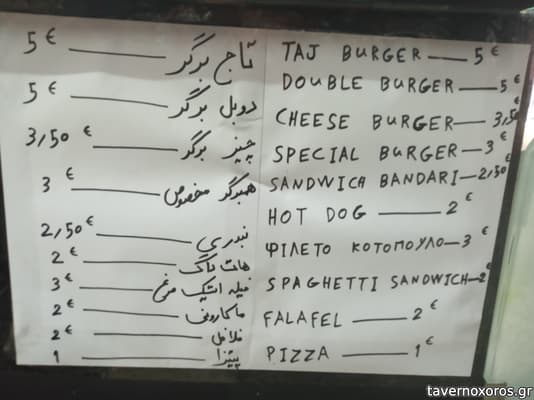 تاج برگر ——— 5 €
دوبل برگر ——— 5 €
چیز برگر ——— 3,50 €
همبرگر مخصوص ——— 3 €
بندری ——— 2,50 €
هات داگ ——— 2 €
فیله استیک مرغ ——— 3 €
ماکارونی ——— 2 €
فلافل ——— 2 €
پیتزا ——— 1
TAJ BURGER — 5 €
DOUBLE BURGER — 5 €
CHEESE BURGER — 3,50 €
SPECIAL BURGER — 3 €
SANDWICH BANDARI — 2,50 €
HOT DOG — 2 €
ΦΙΛΕΤΟ ΚΟΤΟΠΟΥΛΟ — 3 €
SPAGHETTI SANDWICH — 2 €
FALAFEL — 2 €
PIZZA — 1 €
tavernoxoros.gr